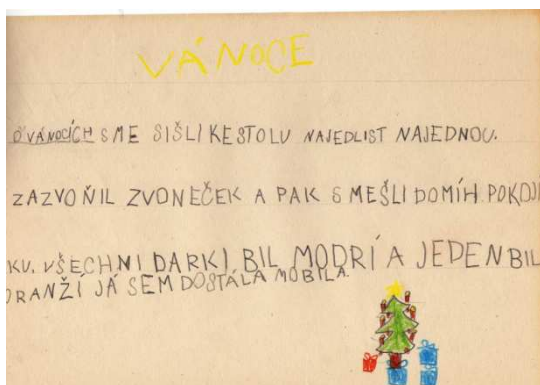 VÁNOCE
O VÁNOCÍCH SME SIŠLI KE STOLU NAJEDLIST NAJEDNOU.
ZAZVOŇIL ZVONEČEK A PAK SMEŠLI DOMÍH POKOJÍ
KU. VŠECHNI DARKI BIL MODRÍ A JEDEN BIL
ORANŽÍ JÁ SEM DOSTÁLA MOBILA.